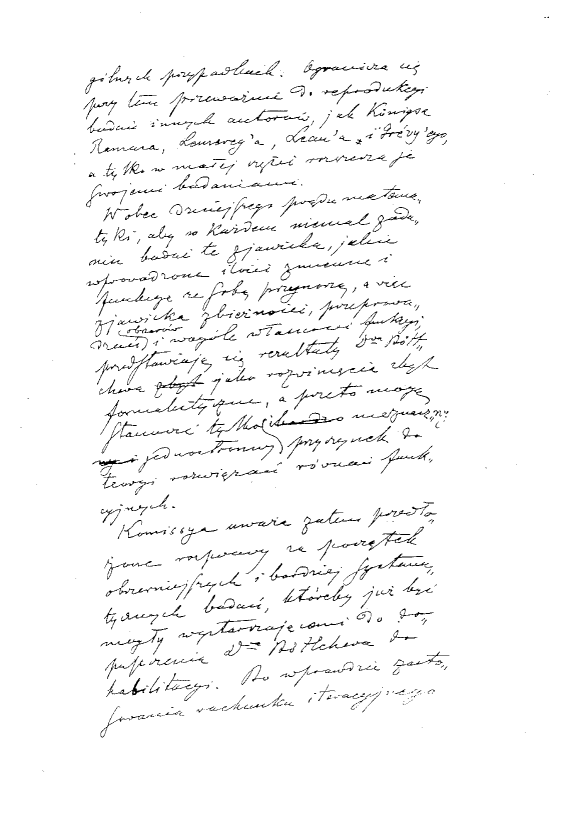 gólnych przypadkach. Ogranicza się
przy tem przeważnie do reprodukcyi
badań innych autorów, jak Königsa
Lemeray'a, Leau'a i Grévy'ego,
a tylko w małej części rozszerza je
swojemi badaniami.
Wobec dzisiejszego prądu matema-
tyki, aby w każdem niemal zada-
niu badać te zjawiska, jakie
wprowadzone ilości zmienne i
funkcye ze sobą przynoszą, a więc
zjawiska zbieżności,
obszarów
i wogóle własności funkcyi,
przedstawiają się rezultaty Dra Bött-
chera zbyt jako rozwinięcie zbyt
formalistyczne, a przeto mogą
stanowić tylko bardzo nieznaczny
i jednostronny przyczynek do
teoryi rozwiązań równań funk-
cyjnych.
Komissya uważa zatem przedło-
żone rozprawy za początek
obszerniejszych i bardziej systema-
tycznych badań, któreby już być
mogły wystarczającemi do do-
puszczenia Dra Böttchera do
habilitacyi. Bo wprawdzie zasto-
sowania rachunku iteracyjnego